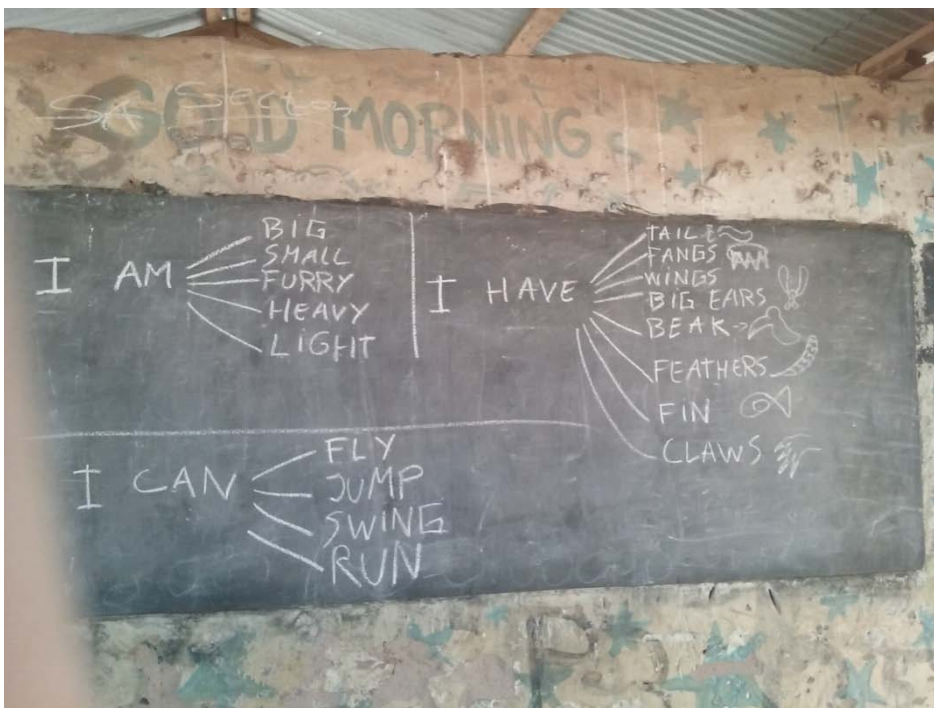 GOOD MORNING
I AM
BIG
SMALL
FURRY
HEAVY
LIGHT
I HAVE
TAIL
FANGS
WINGS
BIG EARS
BEAK
FEATHERS
FIN
CLAWS
I CAN
FLY
JUMP
SWING
RUN